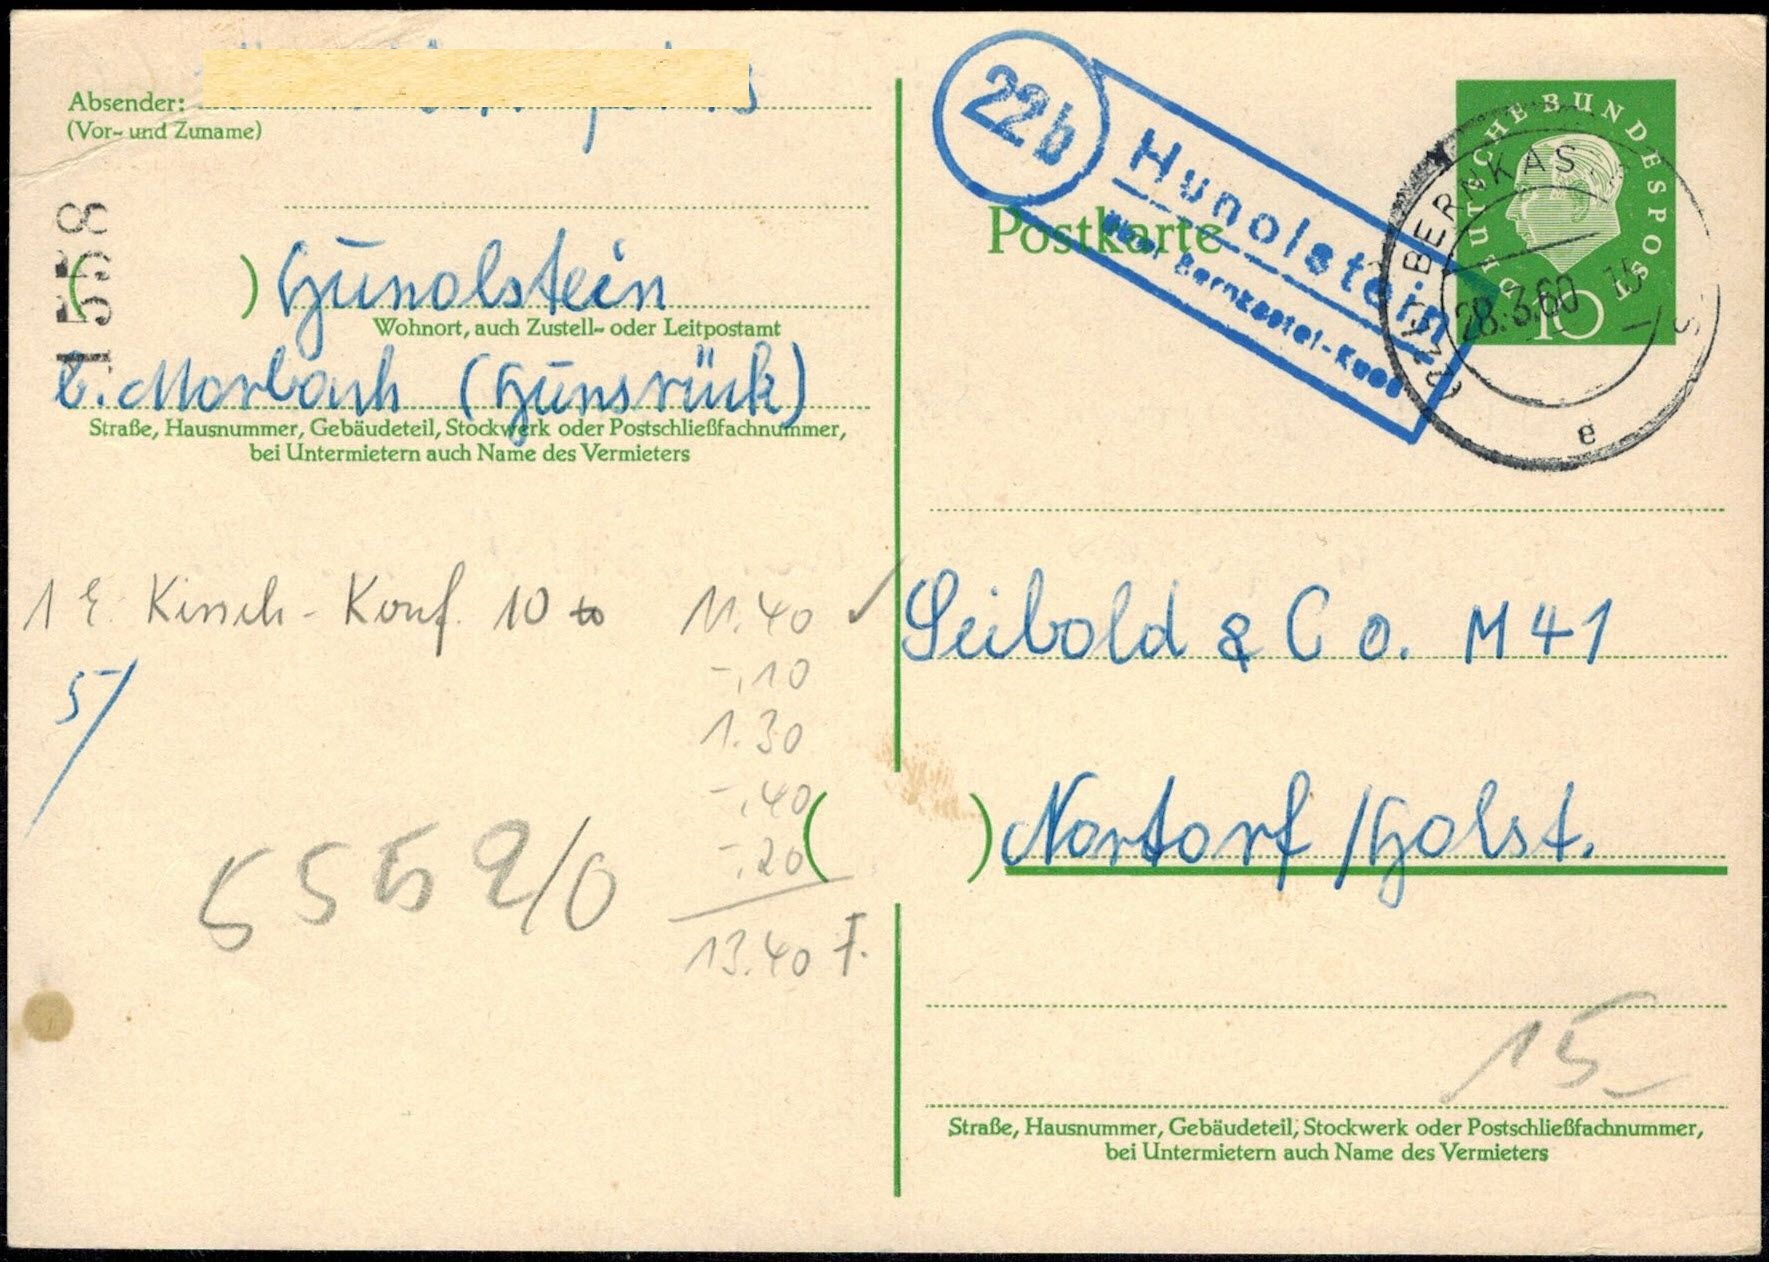 Absender:
(Vor- und Zuname)
1558
( ) Hunolstein
Wohnort, auch Zustell- oder Leitpostamt
b. Morbach (Hunsrück)
Straße, Hausnummer, Gebäudeteil, Stockwerk oder Postschließfachnummer,
bei Untermietern auch Name des Vermieters
1 E. Kirsch-Konf. 10 to 11.40 ✓
-.10
5/
1.30
-.40
-.20
5559/0
13.40 F.
22b
Hunolstein
über Bernkastel-Kues
Postkarte
DEUTSCHE BUNDESPOST
10
(22b) BERNKAS
28.3.60 15
e
Seibold & Co. M 41
( ) Nortorf /Holst.
15-
Straße, Hausnummer, Gebäudeteil, Stockwerk oder Postschließfachnummer,
bei Untermietern auch Name des Vermieters